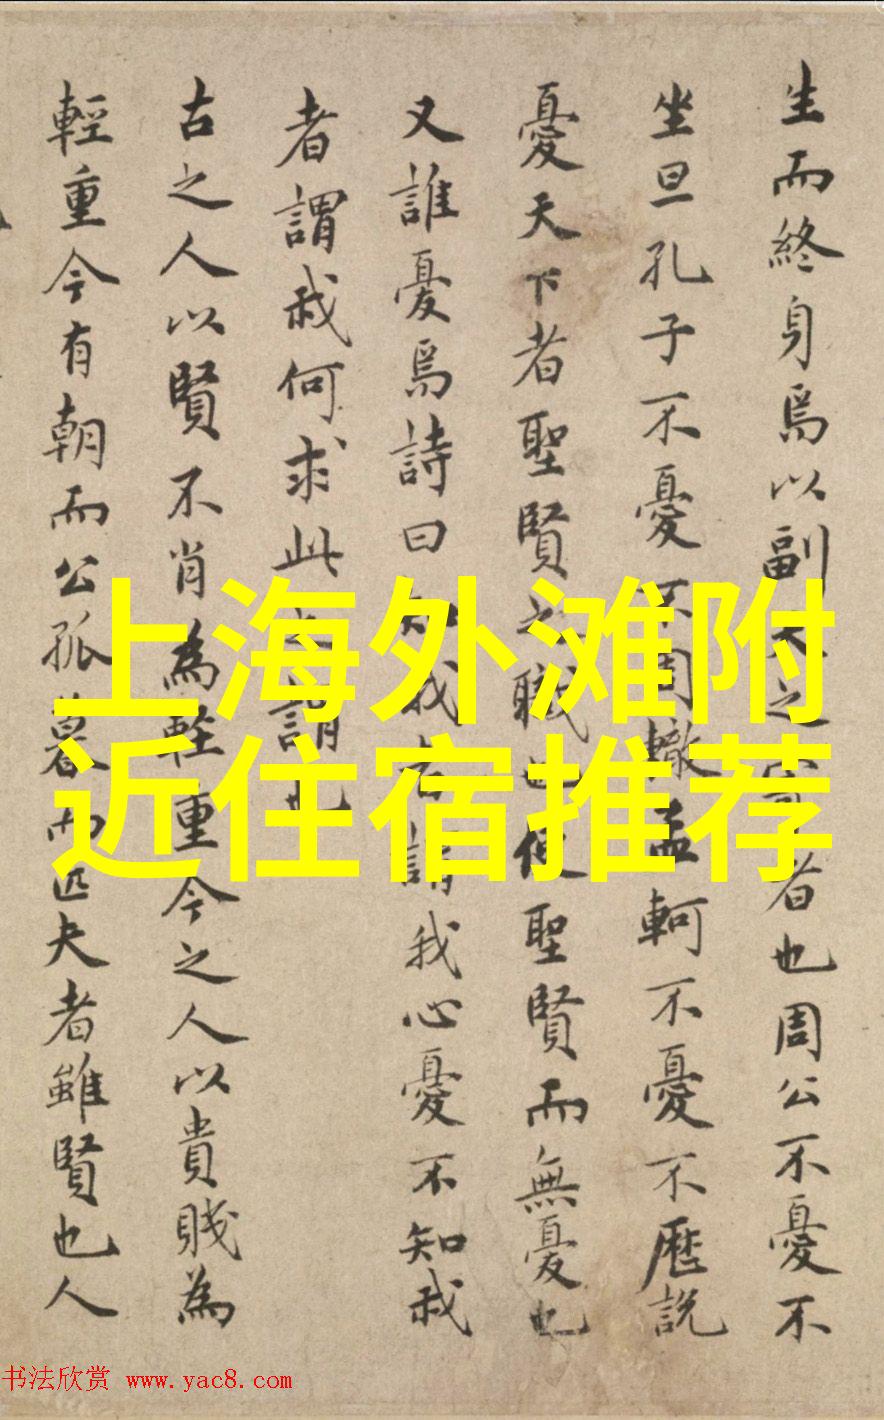 生而終身焉以副天之寄者也周公不憂不
坐旦孔子不憂不周轍孟軻不憂不歷說
憂天下者聖賢之職也使聖賢而無憂也
又誰憂焉詩曰知我者謂我心憂不知我
者謂我何求此之謂也
古之人以賢不肖為輕重今之人以貴賤為
輕重今有朝而公孤暮而匹夫者雖賢也人
上海外滩附
近住宿推荐
书法欣赏 www.yac8.com